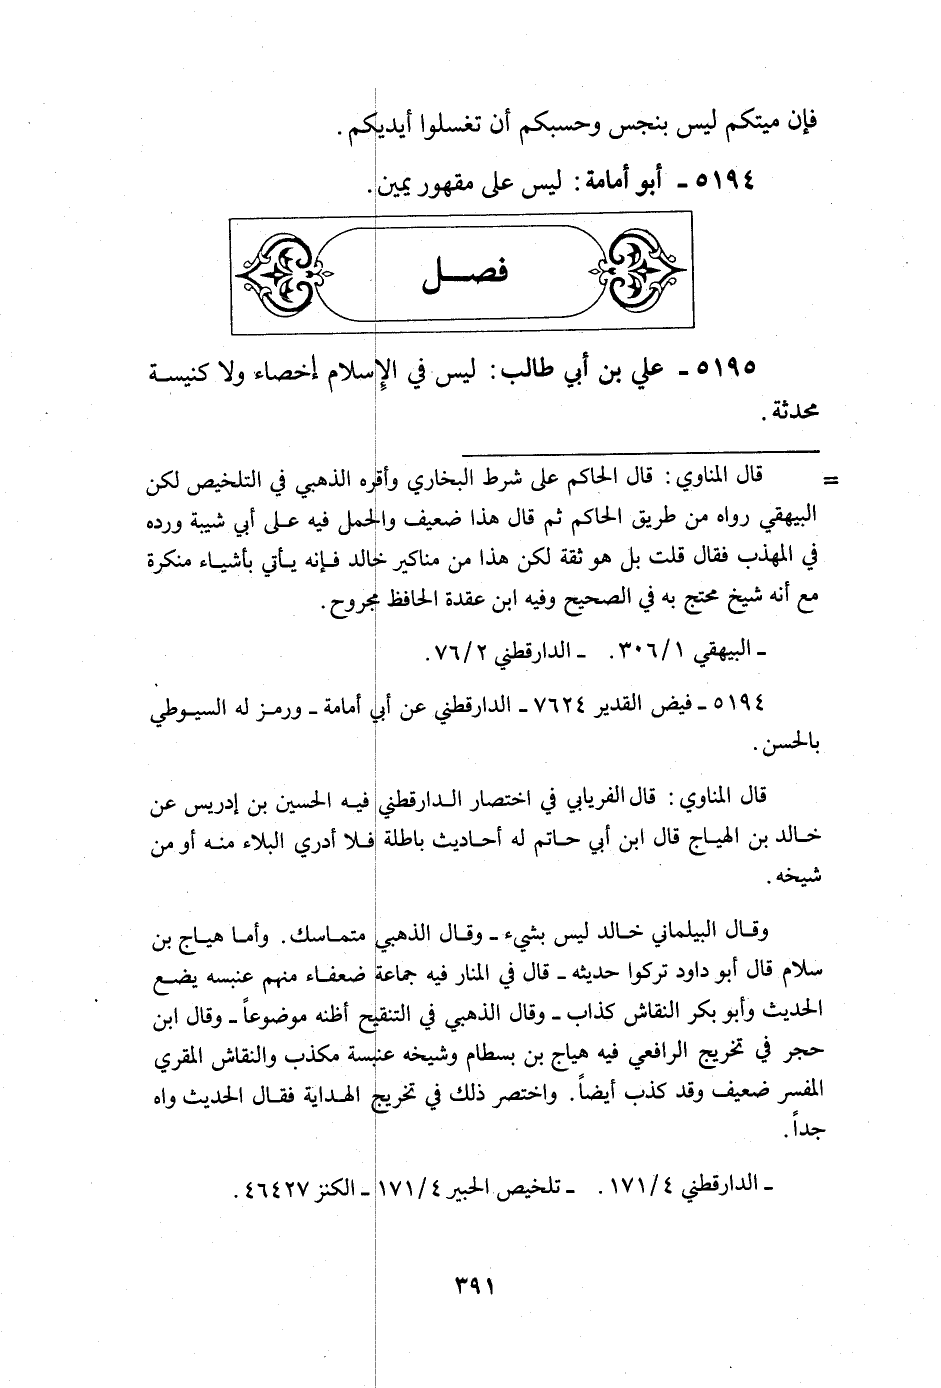 فإن ميتكم ليس بنجس وحسبكم أن تغسلوا أيديكم .
٥١٩٤ ـ أبو أمامة : ليس على مقهور يمين .
فصـــل
٥١٩٥ ـ علي بن أبي طالب : ليس في الإسلام إخصاء ولا كنيسـة
محدثة .
= قال المناوي : قال الحاكم على شرط البخاري وأقره الذهبي في التلخيص لكن
البيهقي رواه من طريق الحاكم ثم قال هذا ضعيف والحمل فيه علـى أبي شيبة ورده
في المهذب فقال قلت بل هو ثقة لكن هذا من مناكير خالد فـإنه يـأتي بأشيـاء منكرة
مع أنه شيخ محتج به في الصحيح وفيه ابن عقدة الحافظ مجروح .
ـ البيهقي ٣٠٦/١ . ـ الدارقطني ٧٦/٢ .
٥١٩٤ ـ فيض القدير ٧٦٢٤ ـ الدارقطني عن أبي أمامة ـ ورمـز له السيـوطي
بالحسن .
قال المناوي : قال الفريابي في اختصار الـدارقطني فيـه الحسين بن إدريس عن
خـالد بن الهيـاج قال ابن أبي حـاتم له أحـاديث باطلة فـلا أدري البلاء منـه أو من
شيخه .
وقـال البيلماني خـالد ليس بشيء ـ وقـال الذهبي متمـاسك . وأمـا هيـاج بن
سلام قال أبو داود تركوا حديثه ـ قال في المنار فيه جماعة ضعفـاء منهم عنبسه يضـع
الحديث وأبو بكر النقاش كذاب ـ وقال الذهبي في التنقيح أظنه موضوعاً ـ وقال ابن
حجر في تخريج الرافعي فيه هياج بن بسطام وشيخه عنبسة مكذب والنقاش المقري
المفسر ضعيف وقد كذب أيضاً . واختصر ذلك في تخريج الهـداية فقـال الحديث واه
جداً .
ـ الدارقطني ١٧١/٤ . ـ تلخيص الحبير ١٧١/٤ ـ الكنز ٤٦٤٢٧ .
٣٩١